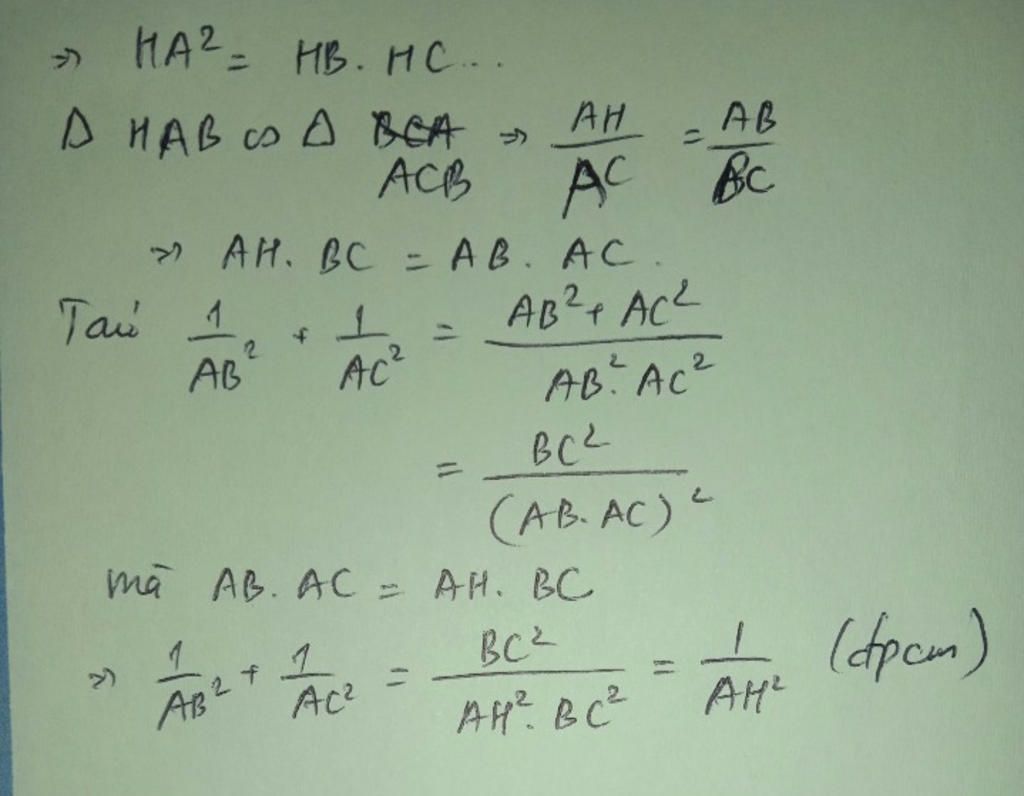 => HA² = HB. HC...
Δ HAB ∽ Δ ACB => AH/AC = AB/BC
=> AH. BC = AB. AC.
Tauı 1/AB² + 1/AC² = (AB² + AC²)/(AB². AC²)
= BC²/(AB. AC)²
mà AB. AC = AH. BC
=> 1/AB² + 1/AC² = BC²/(AH². BC²) = 1/AH² (đpcm)